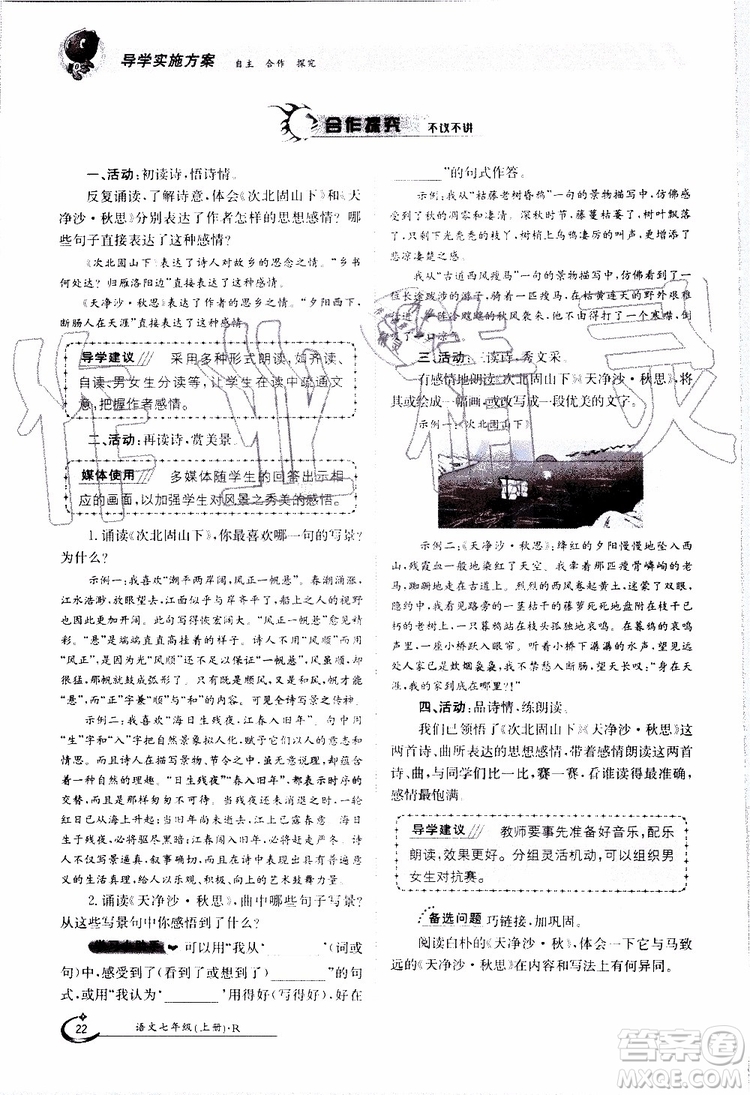 导学实施方案 自主 合作 探究
合作探究 不议不讲
一、活动：初读诗，悟诗情。
反复诵读，了解诗意，体会《次北固山下》和《天
净沙·秋思》分别表达了作者怎样的思想感情？哪
些句子直接表达了这种感情？
《次北固山下》表达了诗人对故乡的思念之情。“乡书
何处达？归雁洛阳边”直接表达了这种感情。
《天净沙·秋思》表达了作者的思乡之情。“夕阳西下，
断肠人在天涯”直接表达了这种感情。
导学建议 采用多种形式朗读，如齐读、
自读、男女生分读等，让学生在读中疏通文
意，把握作者感情。
二、活动：再读诗，赏美景。
媒体使用 多媒体随学生的回答出示相
应的画面，以加强学生对风景之秀美的感悟。
1. 诵读《次北固山下》，你最喜欢哪一句的写景？
为什么？
示例一：我喜欢“潮平两岸阔，风正一帆悬”。春潮涌涨，
江水浩渺，放眼望去，江面似乎与岸平了，船上人的视野
也更加开阔。此句写得恢宏阔大。“风正一帆悬”愈见精
彩。“悬”是端端直直高挂着的样子。诗人不用“风顺”而用
“风正”，是因为光“风顺”还不足以保证“一帆悬”。风虽顺，却
很猛，那帆就鼓成弧形了。只有既是顺风，又是和风，帆才能
“悬”。“正”字兼包“顺”与“和”的内容。使得全诗写景之传神。
示例二：我喜欢“海日生残夜，江春入旧年”。句中用
“生”字和“入”字，作者把它们拟人化，赋予它们以人的意志和
情思。诗人无意说理，却在描写景物、节令之中，蕴含着一种
自然的理趣。“日生残夜”“春入旧年”，都表示时序的
交替，而且是那样匆匆不可待。当残夜还未消退之时，一轮红
日已从海上升起；当旧年尚未逝去，江上已露春意。海日生于
残夜，将驱尽黑暗；江春闯入旧年，将赶走严冬。不仅
写景逼真，叙事确切，而且表现出具有普遍意义
的生活真理，给人以乐观、积极、向上的艺术鼓舞力量。
2. 诵读《天净沙·秋思》，你喜欢哪些句子写景？
从这些写景句中你感悟到了什么？
可以用“我从________（词或
句）中，感受到了（看到了或想到了）________”的句
式，或“我认为‘________’用得好（写得好），好在
22 语文七年级(上册)·R
________”的句式作答。
示例：我从“枯藤老树昏鸦”一句的景物描写中，仿佛感
受到了秋的凋零和凄清。深秋时节，藤蔓枯萎了，树叶飘落
了，只剩下光秃秃的枝丫，树梢上乌鸦凄厉的叫声，更增添了
悲凉凄楚的气氛。
我从“古道西风瘦马”一句的景物描写中，仿佛看到了一
位长途跋涉的游子，骑着一匹瘦马，在枯黄连天的野外艰难
三、活动：三读诗，秀文采。
有感情地朗读《次北固山下》《天净沙·秋思》，将
其或绘成一幅画，或改写成一段优美的文字。
示例一：《次北固山下》
示例二：《天净沙·秋思》：绛红的夕阳慢慢地坠入西
山，残霞血一般地染红了天空。远处一匹瘦骨嶙峋的老
马，踟蹰地走在古道上。烈烈的西风卷起黄土，迷蒙了双眼，
隐约中，我看到路旁的一茎枯干的藤萝死死地附在枝干已
朽的老树上，一只暮鸦站在枝头孤独地哀鸣。在暮鸦的哀鸣
声里，一座小桥跃入眼帘。小桥下流水潺潺，水声，风声，鸦
声，农人家已是炊烟袅袅，可我依然孤独地断肠，“身在天
涯，何处是归程！”
四、活动：品诗情，练朗读。
我们已领悟了《次北固山下》《天净沙·秋思》这
两首诗、曲所表达的思想感情，带着感情朗读这两首
诗、曲，与同学们比一比，赛一赛，看谁读得最准确，
感情最饱满。
导学建议 教师要事先准备好音乐，配乐
朗读，效果更好。分组灵活机动，可以组织男
女生对抗赛。
备选问题 巧链接，加巩固。
阅读白朴的《天净沙·秋》，体会一下它与马致
远的《天净沙·秋思》在内容和写法上有何异同。
作业精灵
答案圈
MXQE.COM